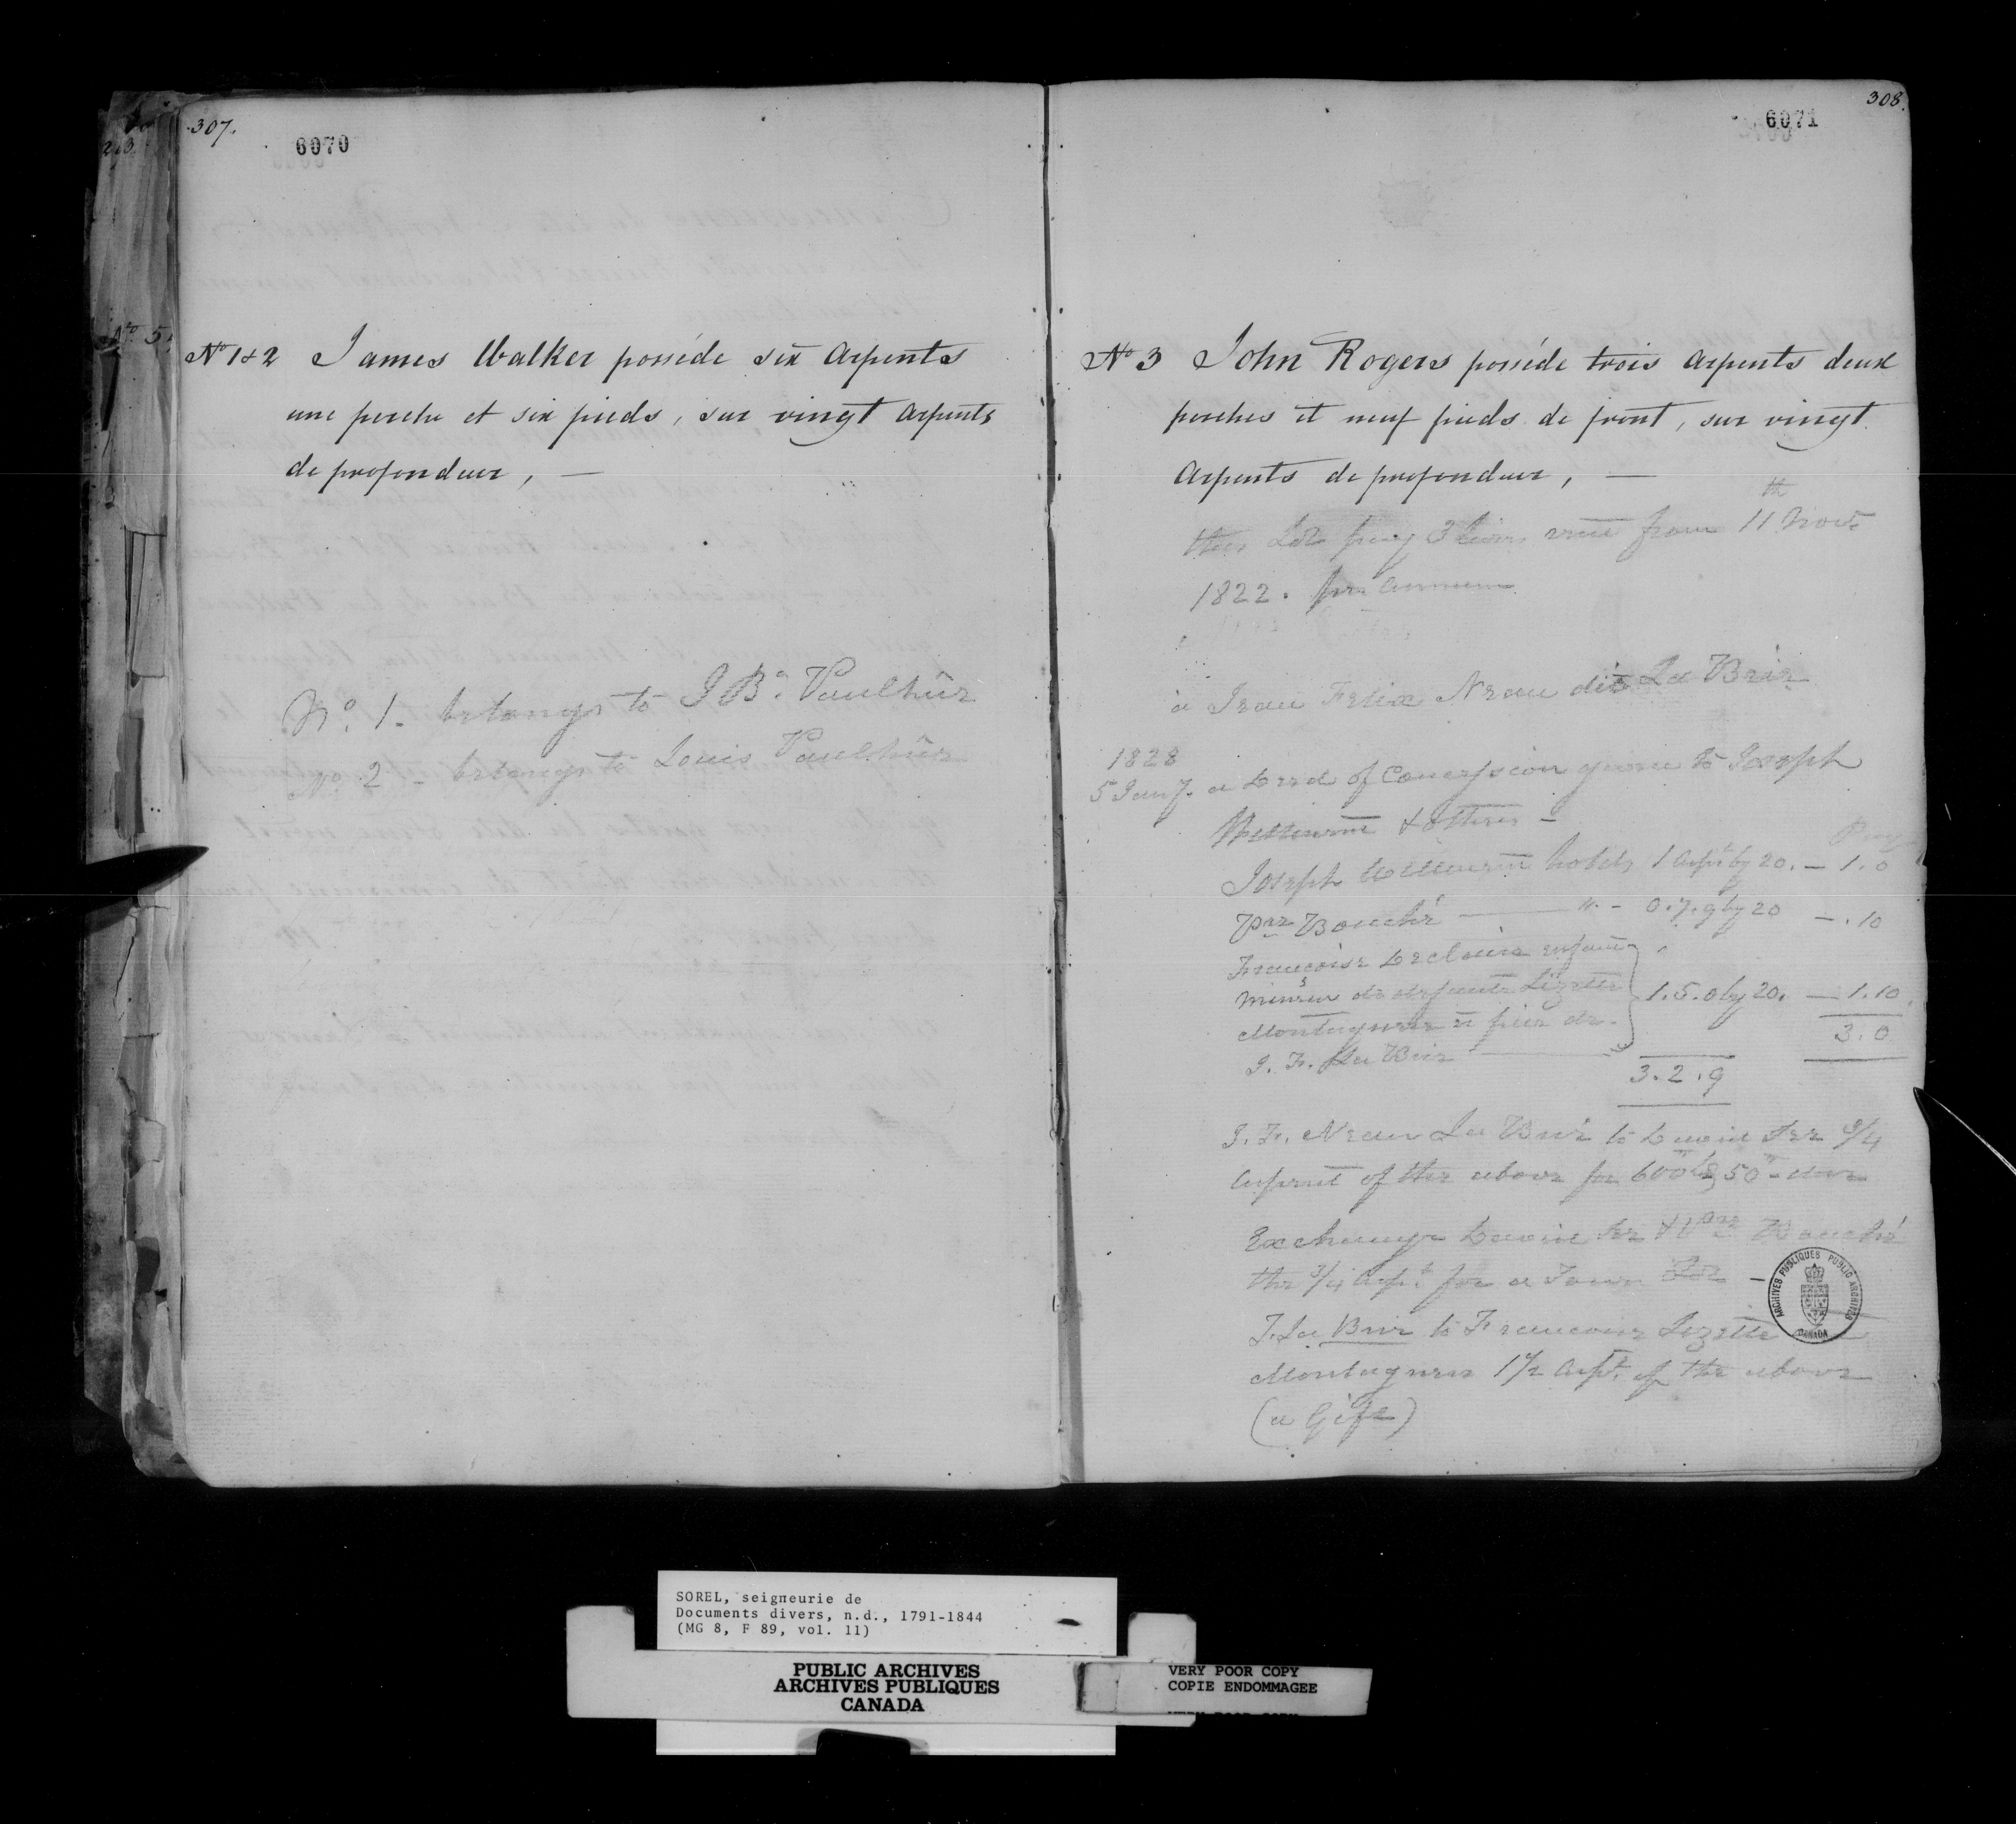 307.
6070
No 1 & 2 James Walker posséde six Arpents
une perche et six pieds, sur vingt Arpents
de profondeur, —
No. 1. belongs to J Bte. Paulhûs
No. 2 - belongs to Louis Paulhûs
308.
6071
No 3 John Rogers posséde trois Arpents deux
perches et neuf pieds de front, sur vingt
Arpents de profondeur, —
this Lot pay 3 livres rent from 11th Novr.
1822. per Annum
à Jean Felix Neau dit La Brie
1828
5 Jany. a Deed of Concession given to Joseph
& others -
Joseph holds 1 Arpt by 20. — 1.0
Boucher — " - 0.7.9 by 20 — .10
Françoise Leclaire enfant
mineur de defunte Lizette 1.5.0 by 20. — 1.10.
3.0
J. F. La Brie
3.2.9
J. F. Neau La Brie to 3/4
Arpent of the above for 600
Exchange Boucher
the 3/4 Arpt. for a Town Lot —
F. La Brie to Lizette
1 1/2 Arpt. of the above
(a Gift)
ARCHIVES PUBLIQUES PUBLIC ARCHIVES
CANADA
SOREL, seigneurie de
Documents divers, n.d., 1791-1844
(MG 8, F 89, vol. 11)
PUBLIC ARCHIVES
ARCHIVES PUBLIQUES
CANADA
VERY POOR COPY
COPIE ENDOMMAGEE